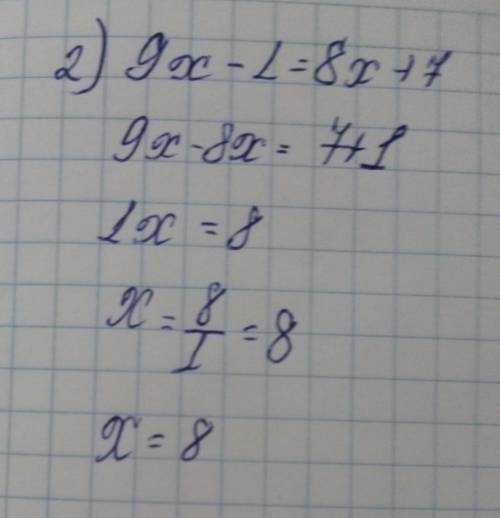 2) 9x - 1 = 8x + 7
9x - 8x = 7+1
1x = 8
x = 8/1 = 8
x = 8